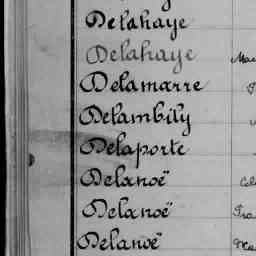 Delahaye
Delahaye
Delamarre
Delambily
Delaporte
Delanoë
Delanoë
Delanoë